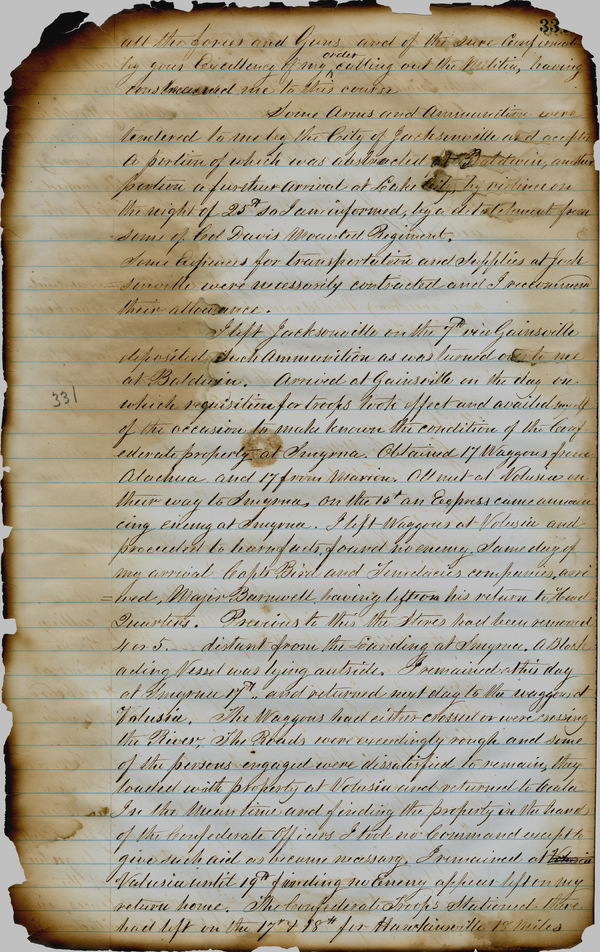 33
all the forces and Guns and of the sure Confirmat
by your Excellency of my order calling out the Militia, having
constrained me to this course
Some Arms and Ammunition were
tendered to me by the City of Jacksonville and acepted
a portion of which was abstracted at Baldwin, another
portion a further arrival at Lake City, by
the night of 25th so I am informed, by a detatchment from
some of Col Davis Mounted Regiment.
Some Expences for transportation and Supplies at Jack
sonville were necessarily contracted and I recommend
their allowance.
I left Jacksonville on the 7th via Gainsville
deposited such Ammunition as was turned over to me
at Baldwin. Arrived at Gainsville on the day on
which requisition for troops took effect and availed myself
331
of the occasion to make known the condition of the Conf
ederate property at Smyrna. Obtained 17 Waggons from
Alachua and 17 from Marion. All met at Volusia on
their way to Smyrna, on the 15th an Express came announ
cing enemy at Smyrna. I left Waggons at Volusia and
proceeded to learn facts, found no enemy. Same day of
my arrival Capts Bird and companies, arri
ved, Major Barnwell having left on his return to Head
Quarters. Previous to this the Stores had been removed
4 or 5 distant from the Landing at Smyrna. A Block
ading Vessel was lying outside. I remained this day
at Smyrna 17th, and returned next day to the waggons at
Volusia. The Waggons had either crossed or were crossing
the River, The Roads were exceedingly rough and some
of the persons engaged were dissatisfied to remain, they
loaded with property at Volusia and returned to Ocala
In the mean time and finding the property in the hands
of the Confederate Officers I had no Command except to
give such aid as became necessary. I remained at Volusia
Volusia until 19th finding no Enemy appear left on my
return home. The Confederate Troops Stationed there
had left on the 17th & 18th for Hawkinsville 18 miles